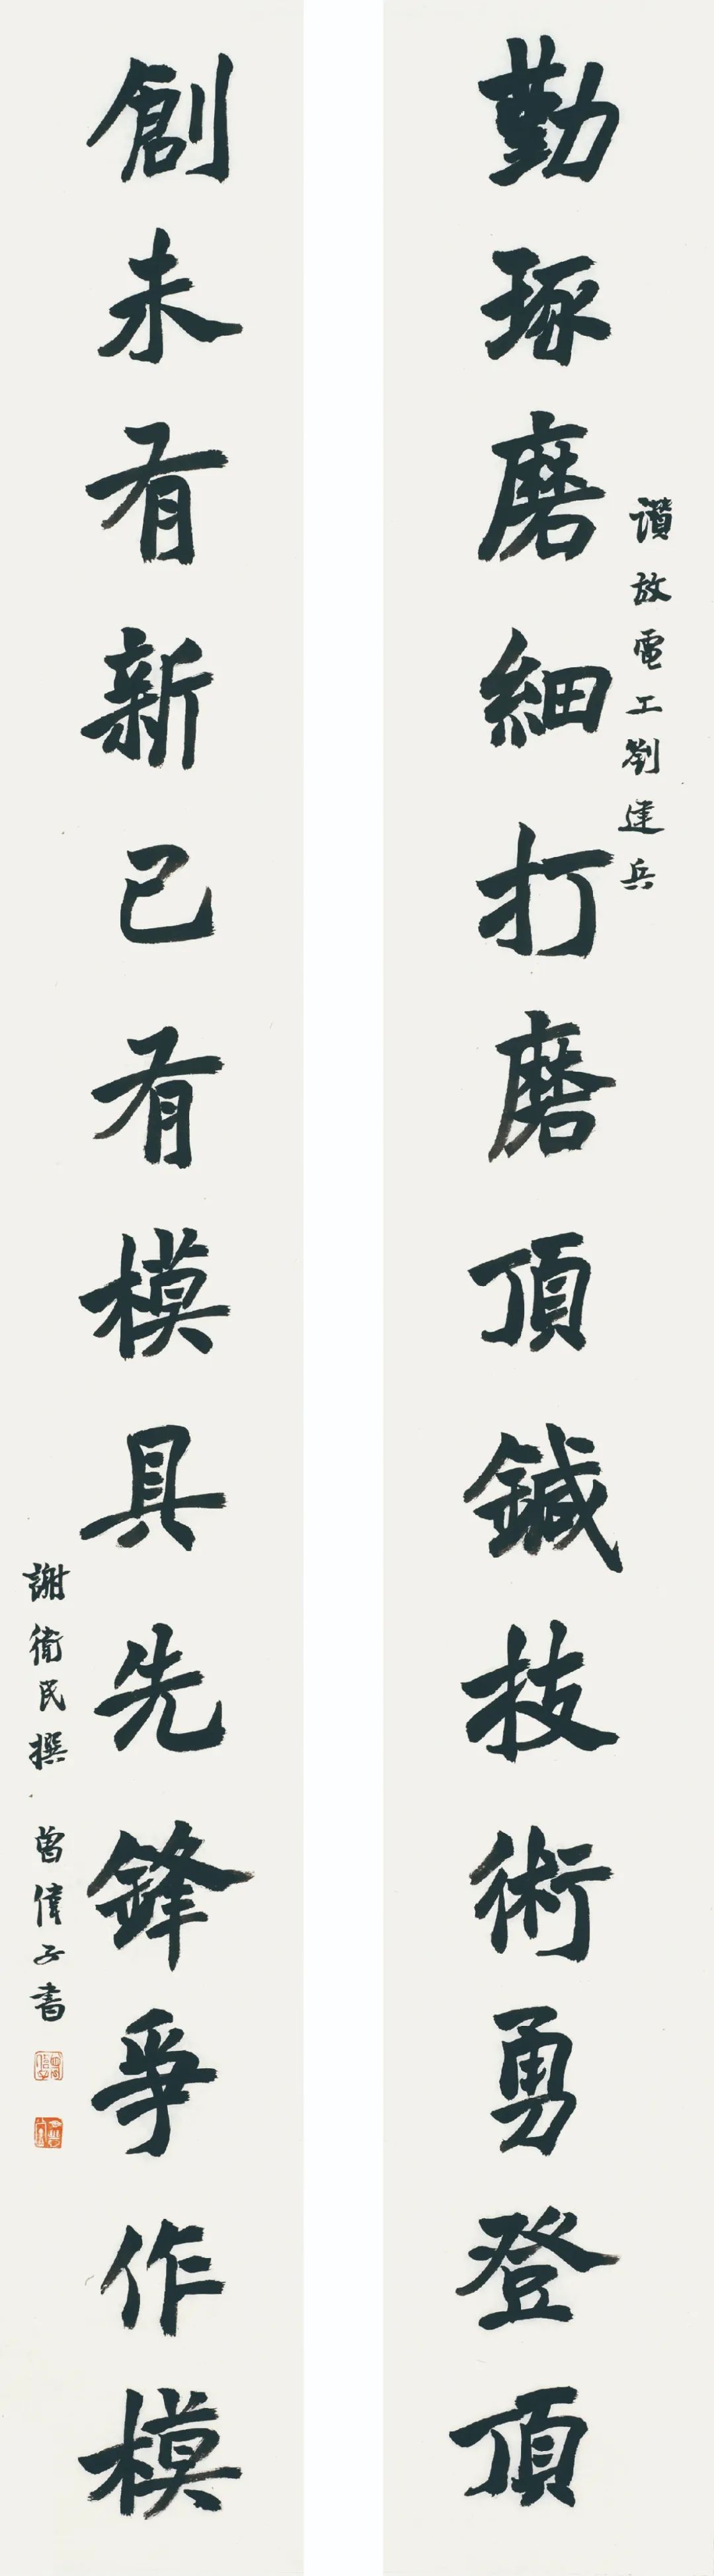 讚放電工劉建兵
勤琢磨細打磨頂鍼技術勇登頂
創未有新已有模具先鋒爭作模
謝衛民撰 曾偉子書